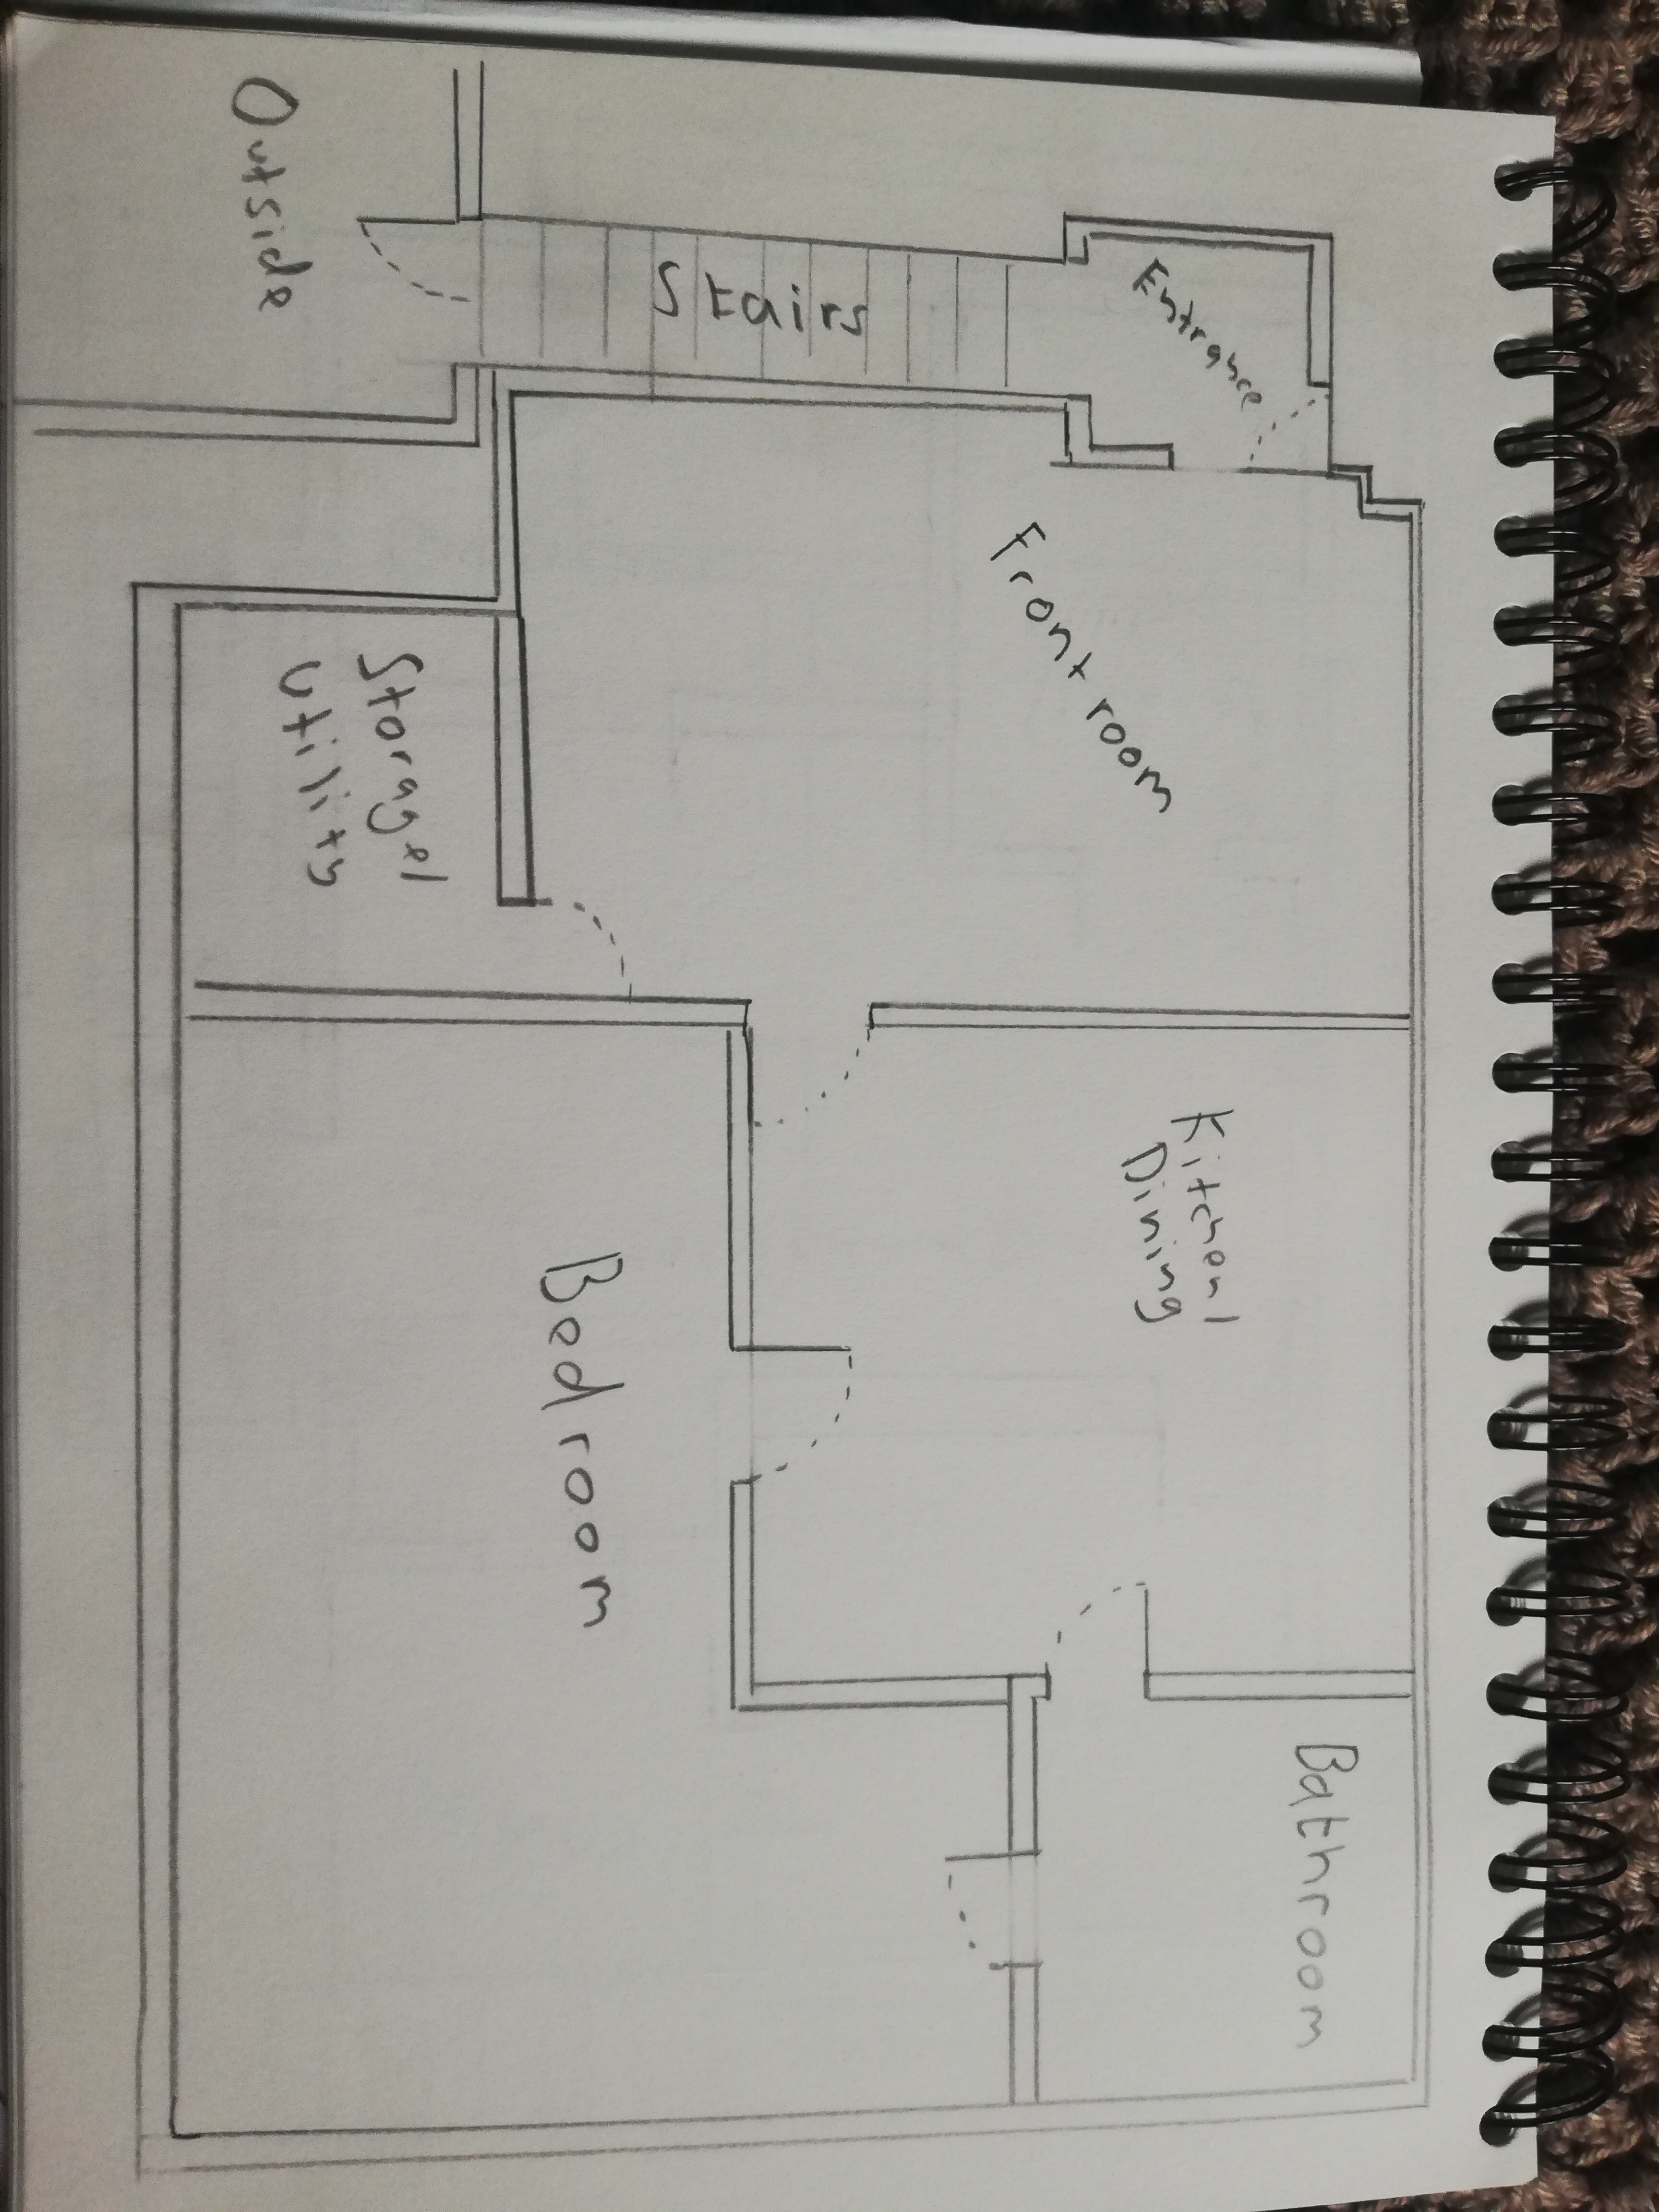 Entrance
Stairs
Outside
Front room
Storage/
Utility
Kitchen/
Dining
Bedroom
Bathroom